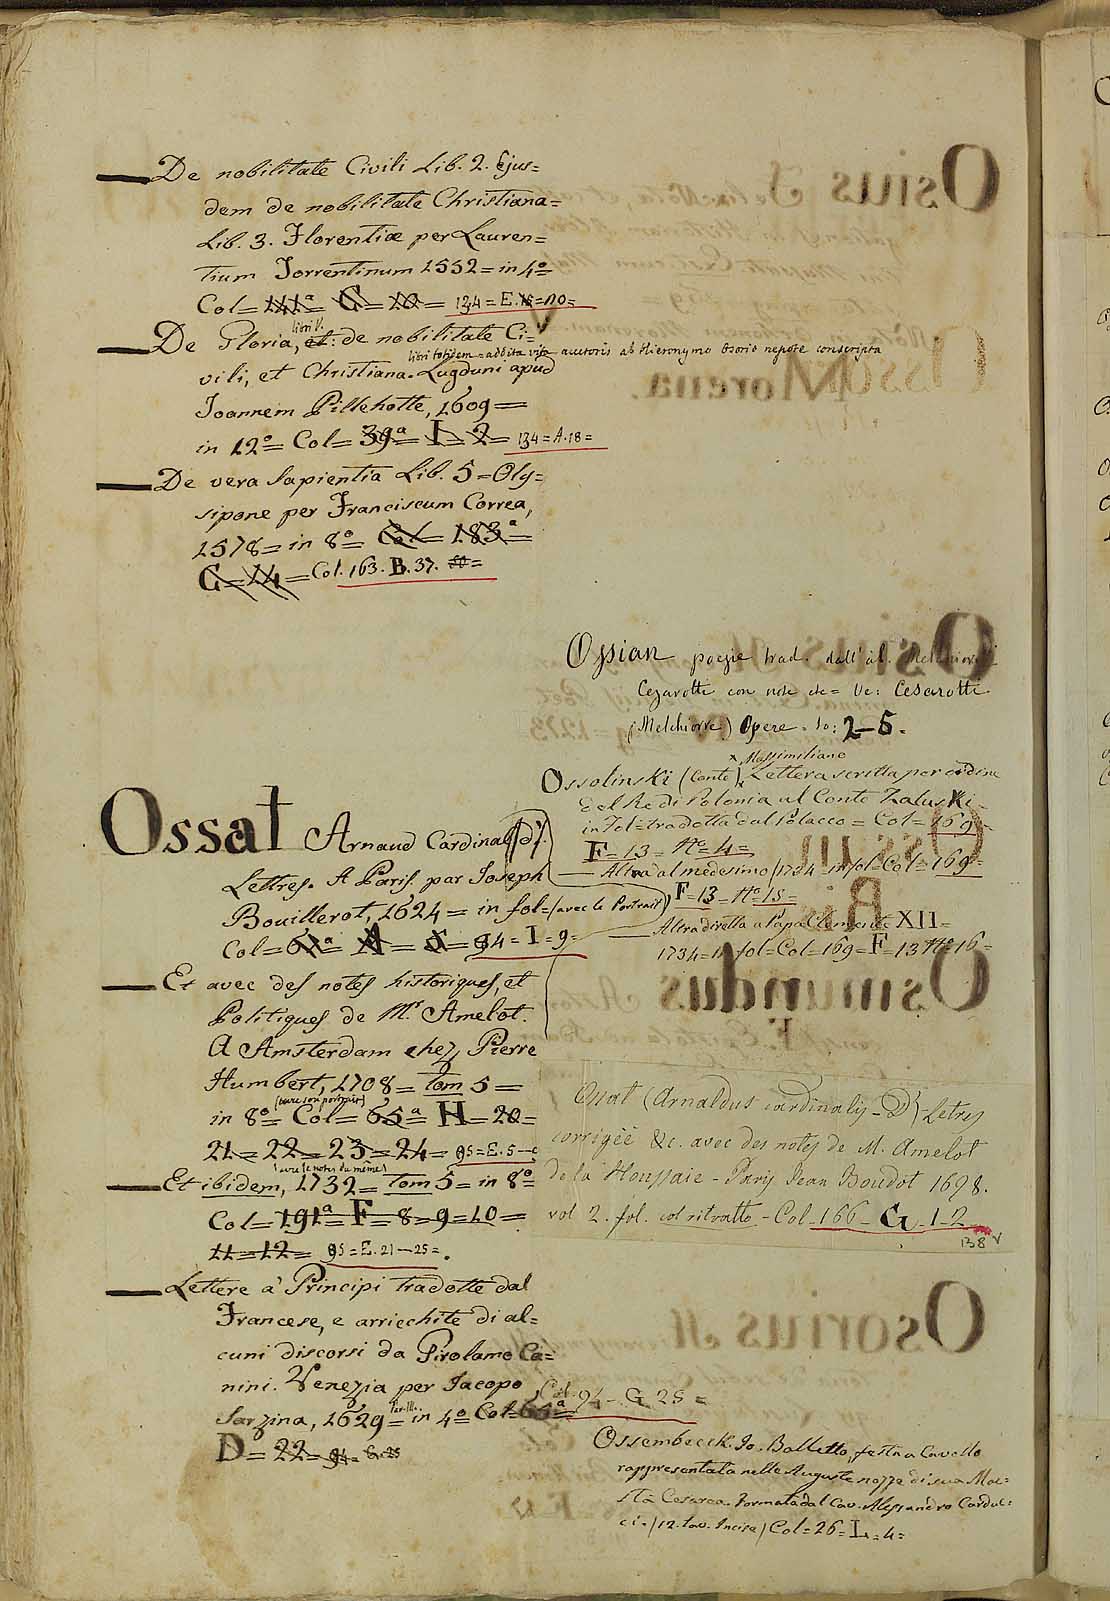 De nobilitate Civili Lib. 2. Ejus=
dem de nobilitate Christiana=
Lib. 3. Florentiæ per Lauren=
tium Torrentinum 1552= in 4º=
Col= 141ª= C= 10= 134= E. =no=
libri V.
De Gloria, et: de nobilitate Ci=
libri totidem= addita vita auctoris ab Hieronymo Osorio nepote conscripta
vili, et Christiana. Lugduni apud
Joannem Pillehotte, 1609=
in 12º= Col= 39ª= I= 2= 134= A. 18=
De vera Sapientia Lib. 5= Oly=
sipone per Franciscum Correa,
1578= in 8º= Col= 183ª=
C= 14= Col. 163. B. 37.
Ossat Arnaud Cardinal (d')
Lettres. A Paris. par Joseph
Bouillerot, 1624= in fol= (avec le Portrait)
Col= A= 94= I= 9=
Et avec des notes historiques, et
Politiques de Mr. Amelot.
A Amsterdam chez Pierre
Humbert, 1708= tom 5=
(avec son portrait)
in 8º= Col= 65ª= H= 20=
21= 22= 23= 24= 95= E. 5-
(avec le notes du même)
Et ibidem, 1732= tom 5= in 8º
Col= 191ª= F= 8= 9= 10=
11= 12= 95= E. 21-25=.
Lettere a' Principi tradotte dal
Francese, e arricchite di al=
cuni discorsi da Girolamo Ca=
nini. Venezia per Iacopo
Sarzina, 1629= in 4º= Col= 65ª=
Col. 94- G. 25=
D= 22= 94= G. 25
Ossian poezie trad. dall' ab. Melchiorre
Cezarotti con note etc= Ve: Cesarotti
(Melchiorre) Opere. to: 2-5.
x Massimiliano
Ossolinski (Conte)x Lettera scritta per ordine
del Re di Polonia al Conte Zaluski-
in fol= tradotta dal Polacco= Col= 169-
F= 13= Nº= 4=
Altra al medesimo 1734= in fol= Col= 169=
F= 13= Nº= 15=
Altra diretta a Papa Clemente XII=
1734= in fol= Col= 169= F= 13 Nº 16=
Ossat (Arnaldus cardinalis- D') Letres
corrigèè &c. avec des notes de M. Amelot
de la Houssaie- Paris Jean Boudot 1698.
vol 2. fol. col ritratto- Col- 166- G. 1-2
138 v
Ossembeeck. Io. Balletto, festa a Cavallo
rappresentata nelle Auguste nozze di sua Mae=
stà Cesarea. Formata dal Cav. Alessandro Carduc=
ci. (12. tav. Incise) Col= 26= L= 4=